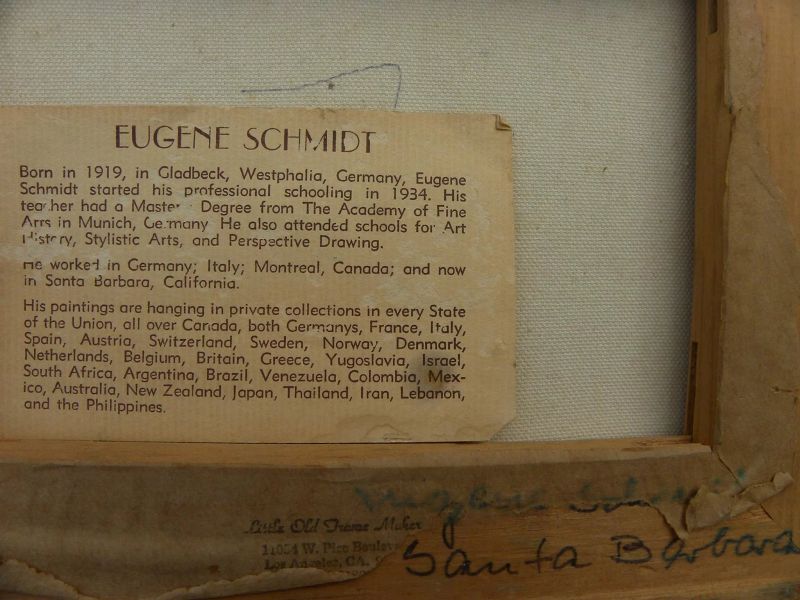 EUGENE SCHMIDT
Born in 1919, in Gladbeck, Westphalia, Germany, Eugene
Schmidt started his professional schooling in 1934. His
teacher had a Master Degree from The Academy of Fine
Arts in Munich, Germany He also attended schools for Art
History, Stylistic Arts, and Perspective Drawing.
He worked in Germany; Italy; Montreal, Canada; and now
in Santa Barbara, California.
His paintings are hanging in private collections in every State
of the Union, all over Canada, both Germanys, France, Italy,
Spain, Austria, Switzerland, Sweden, Norway, Denmark,
Netherlands, Belgium, Britain, Greece, Yugoslavia, Israel,
South Africa, Argentina, Brazil, Venezuela, Colombia, Mex-
ico, Australia, New Zealand, Japan, Thailand, Iran, Lebanon,
and the Philippines.
Little Old Frame Maker
W. Pico
Los Angeles, CA.
Santa Barbara